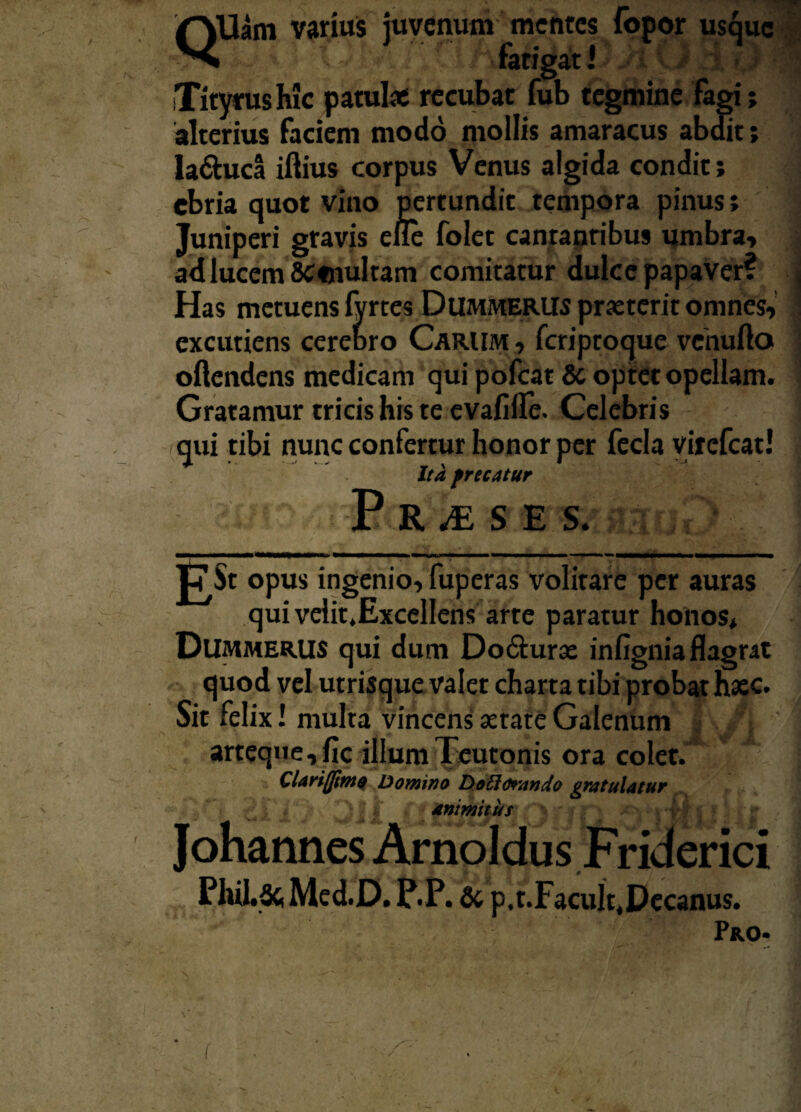 QUàm varius juvenum mentes ſopor usque
fatigat!
Tityrus hîc patulæ recubat ſub tegmine fagi;
alterius faciem modò mollis amaracus abdit;
lactucâ iſtius corpus Venus algida condit;
ebria quot vino pertundit tempora pinus;
Juniperi gravis eſſe ſolet cantantribus umbra,
ad lucem & multam comitatur dulce papaver?
Has metuens ſyrtes DUMMERUS præterit omnes,
excutiens cerebro CARUM, ſcriptoque venuſto
oſtendens medicam qui poſcat & optet opellam.
Gratamur tricis his te evaſiſſe. Celebris
qui tibi nunc confertur honor per ſecla vireſcat!
Ità precatur
PRÆSES.
ESt opus ingenio, ſuperas volitare per auras
qui velit. Excellens arte paratur honos.
DUMMERUS qui dum Docturæ inſignia flagrat
quod vel utrisque valet charta tibi probat hæc.
Sit felix! multa vincens ætate Galenum
arteque, ſic illum Teutonis ora colet.
Clariſſimo Domino Doctorando gratulatur
animitùs
Johannes Arnoldus Friderici
Phil. & Med. D. P.P. & p.t. Facult. Decanus.
PRO-